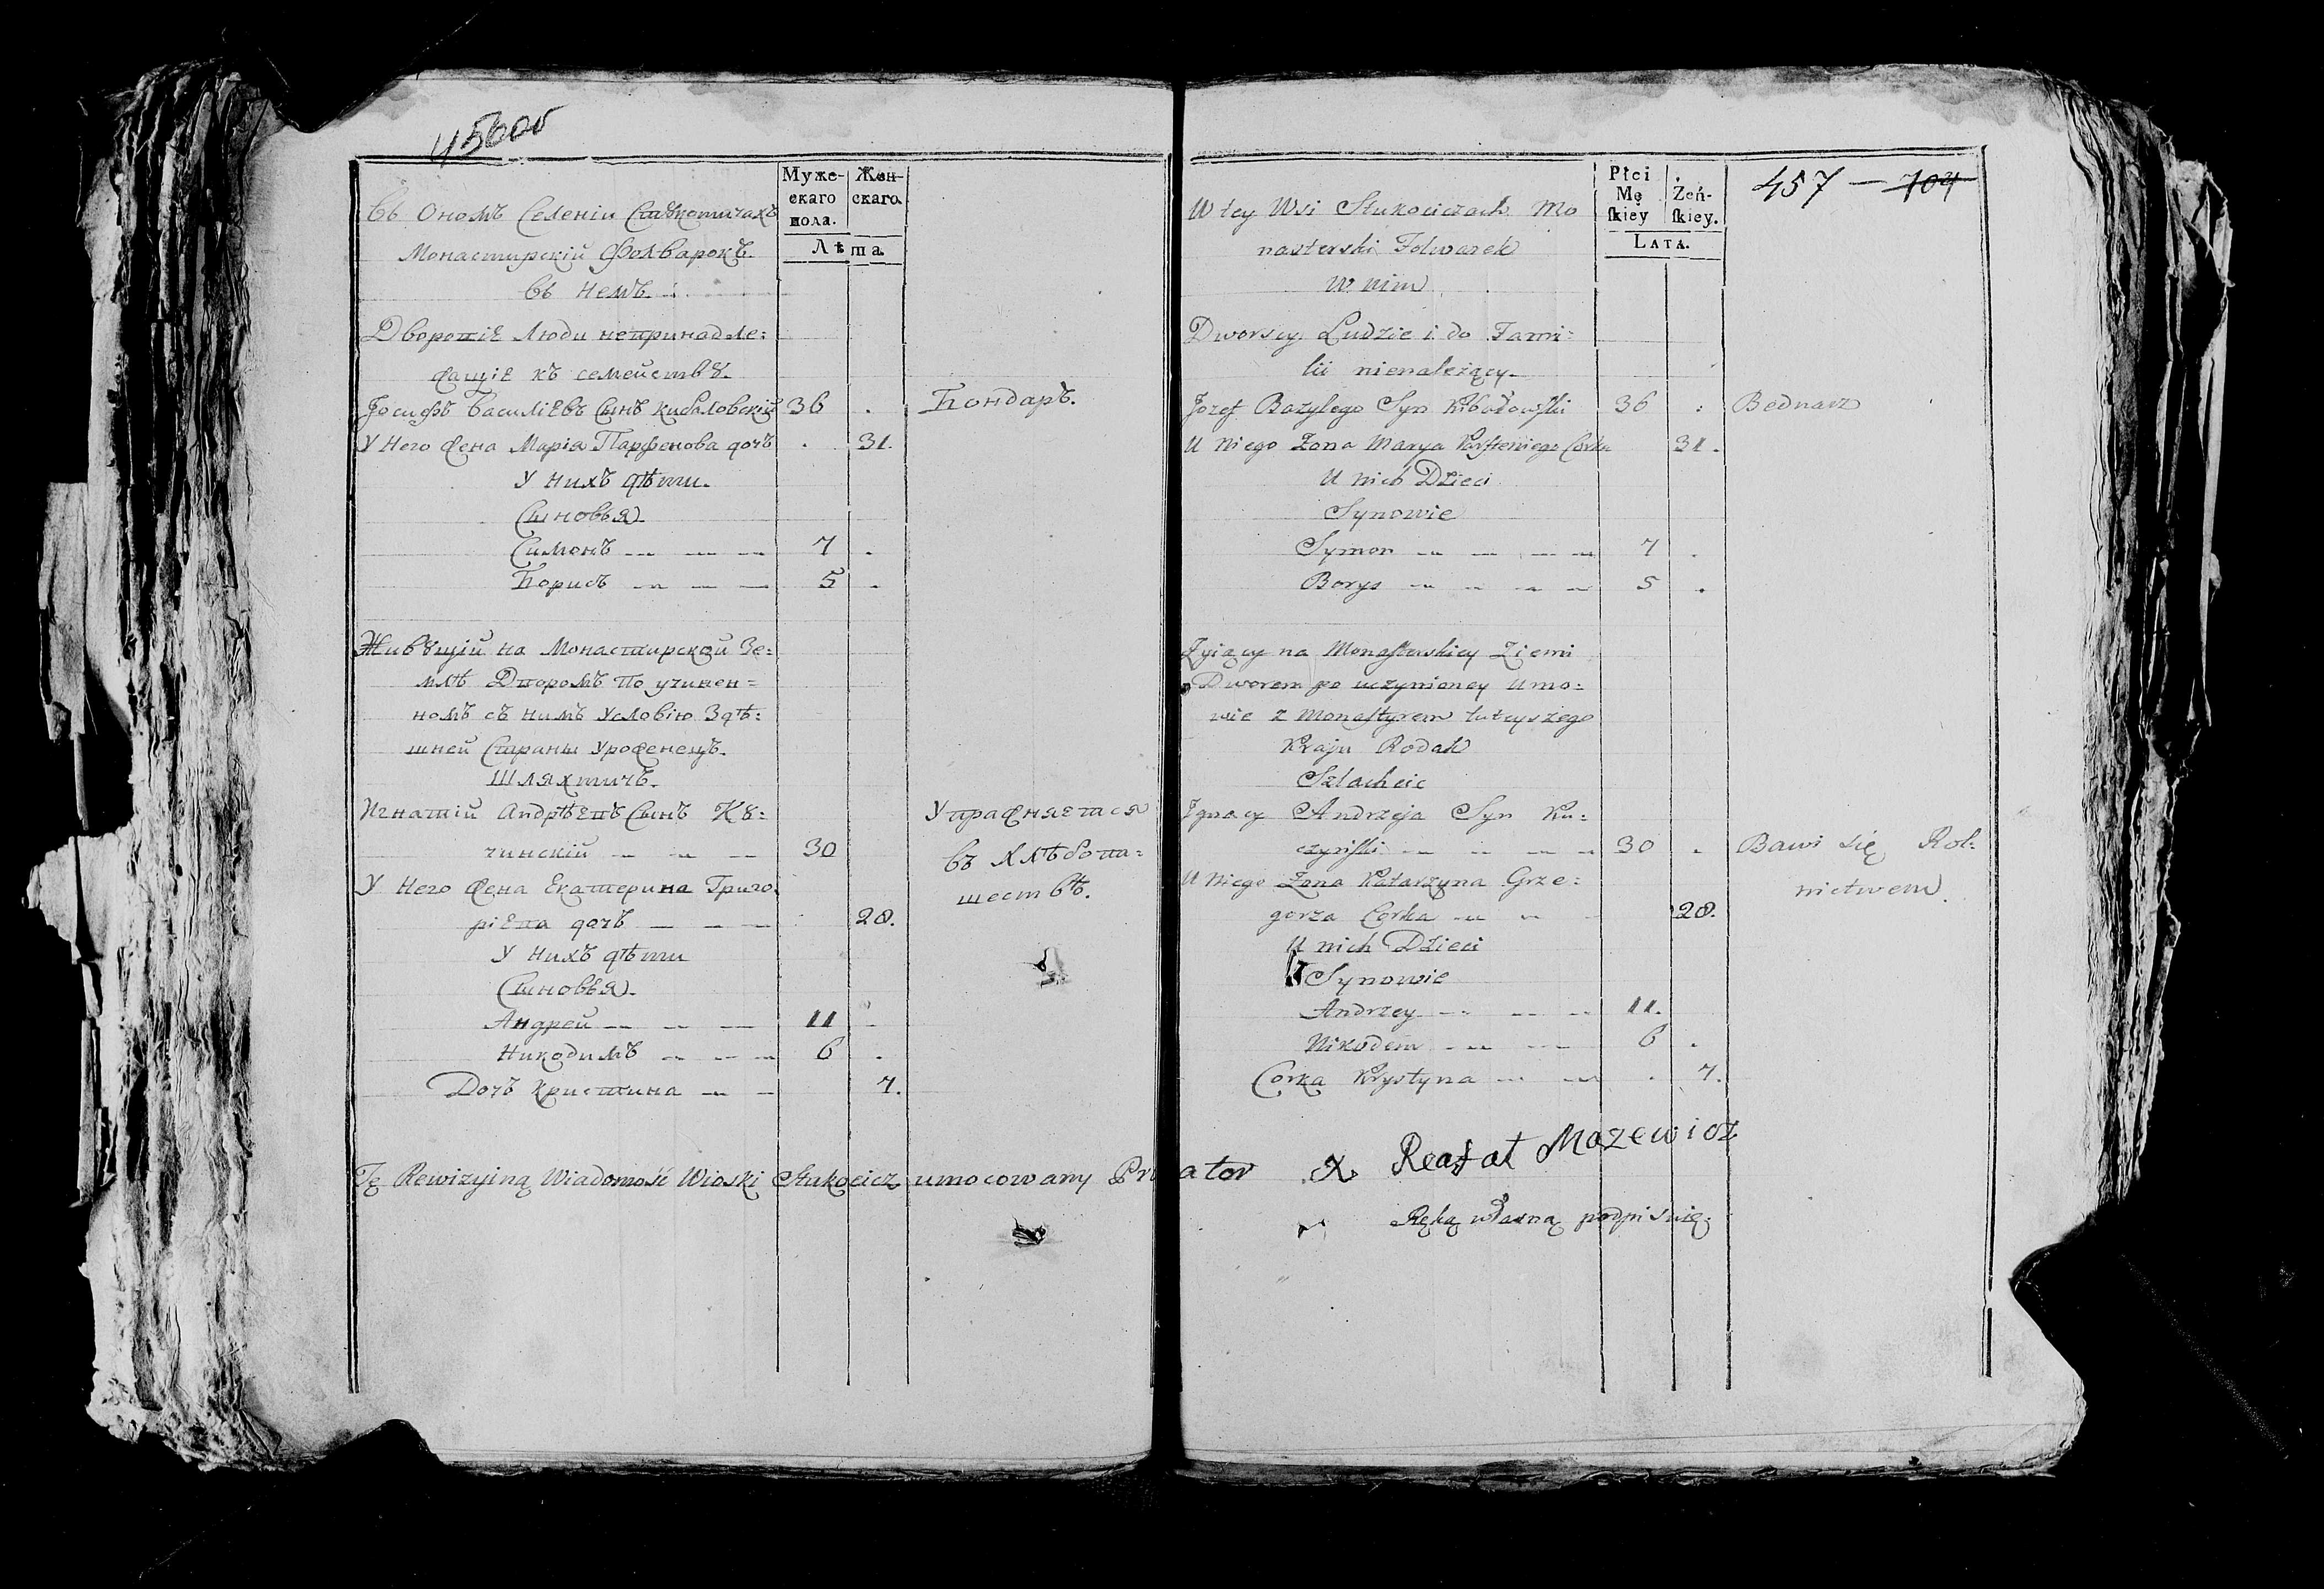 456об
Муже-
скаго
пола.
Жен-
скаго.
Лѣта
Въ Ономъ Селеніи Стꙋкотичахъ
Монастирскій Фолварокъ.
въ немъ.
Дворотіе Люди непринадле:
жащіе къ семействꙋ.
Іосифъ Василіевъ Сынъ Кибаловскій 36 . Бондаръ.
У Него жена Марія Парфенова дочь . 31.
У нихъ дѣти.
Сыновья.
Симонъ 7 .
Борисъ 5 .
Живꙋщій на Монастирской Зе:
млѣ Двꙋромъ по учинен=
номъ съ нимъ условію Здѣ:
шней Страны Уроженецъ.
Шляхтичъ.
Игнатій Андрѣевъ Сынъ Кꙋ:
чинскій 30
Упражняется
въ хлѣбопа:
шествѣ.
У Него жена Екатерина Григо
ріева дочь 28.
У нихъ дѣти
Сыновья.
Андрей 11 .
Никодимъ 6 .
Дочь Кристина 7.
Płci
Mę
ſkiey
Żeń-
ſkiey.
LATA.
457 — 704
W tey Wsi Stukociczach Mo
nasterski Folwarek
W nim
Dworscy Ludzie i do Fami:
lii nienależący.
Jozef Bazylego Syn Kibałowſki 36 . Bednarz
U niego Żona Marya Parfieniego Corka 31.
U nich Dzieci
Synowie
Symon 7 .
Borys 5 .
Żyiący na Monaſterskiey Ziemi
Dworem po uczynioney Umo:
wie z Monaſtyrem tuteyszego
Kraju Rodak
Szlachcic
Ignacy Andrzeja Syn Ku:
czyńſki 30 . Bawi się Rol:
nictwem.
U niego Żona Katarzyna Grze:
gorza Corka 28.
U nich Dzieci
Synowie
Andrzey 11.
Nikodem 6 .
Corka Krystyna . 7.
Tę Rewizyiną Wiadomość Wioski Stukocicz umocowany
X Reafat Mazewicz
Ręką własną podpisuię.